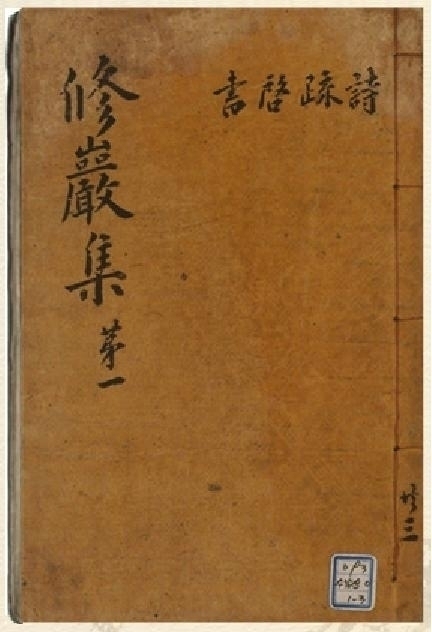 詩疏啓書
修巖集 第一
共三
1-3